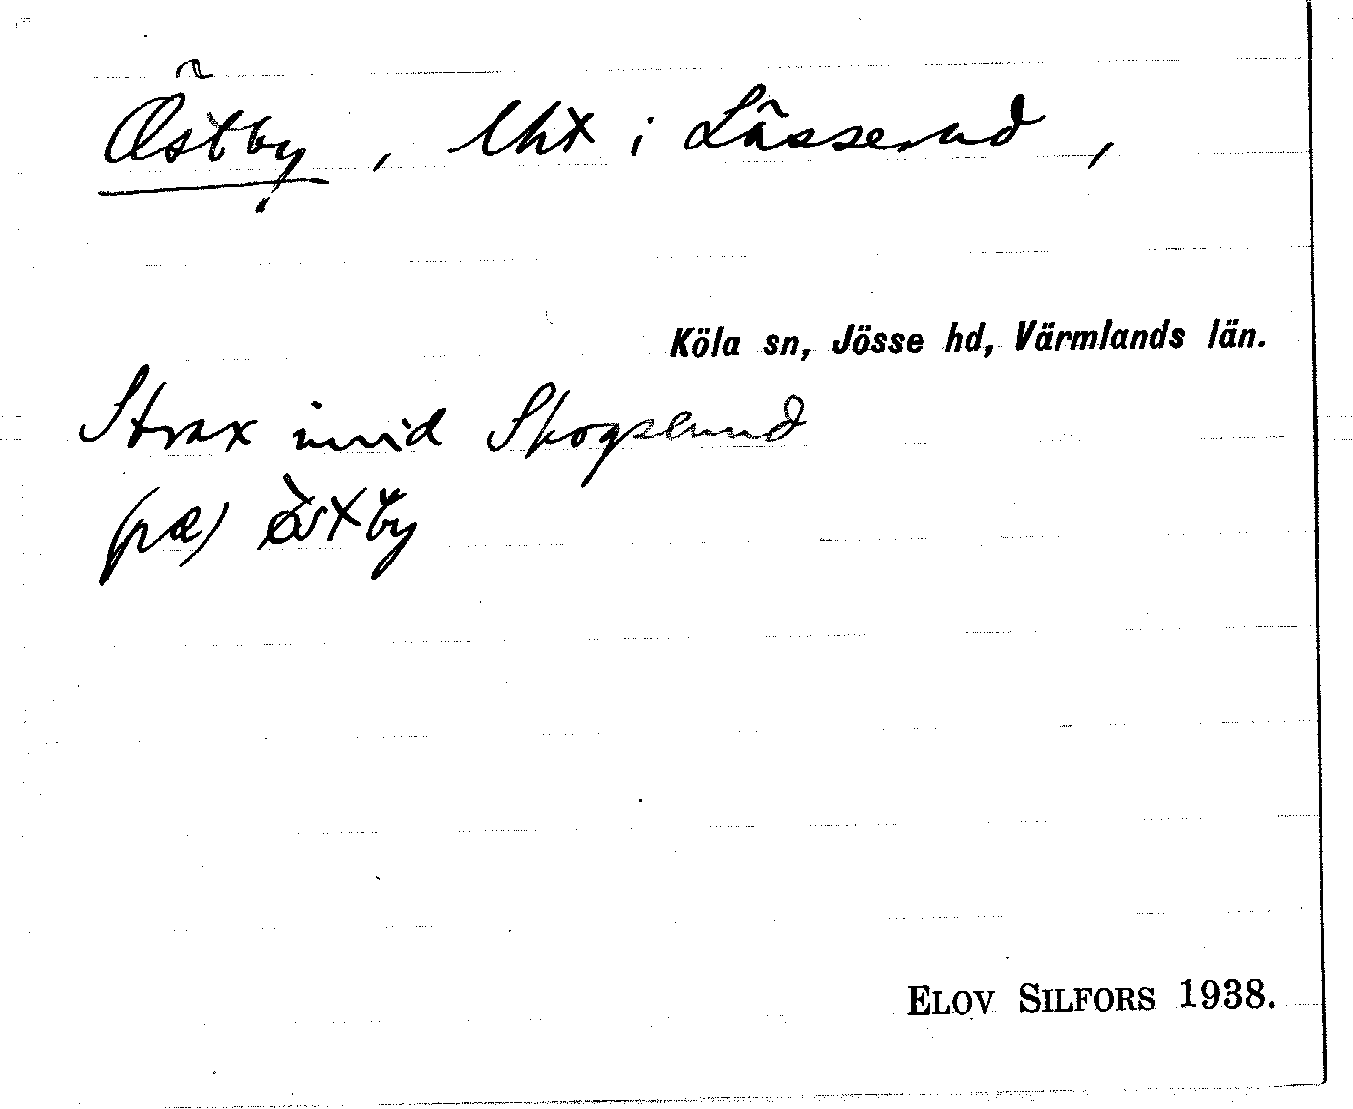 Östby, lht i Låsserud,
Köla sn, Jösse hd, Värmlands län.
Strax invid Skogslund
(pæ) östby
ELOV SILFORS 1938.